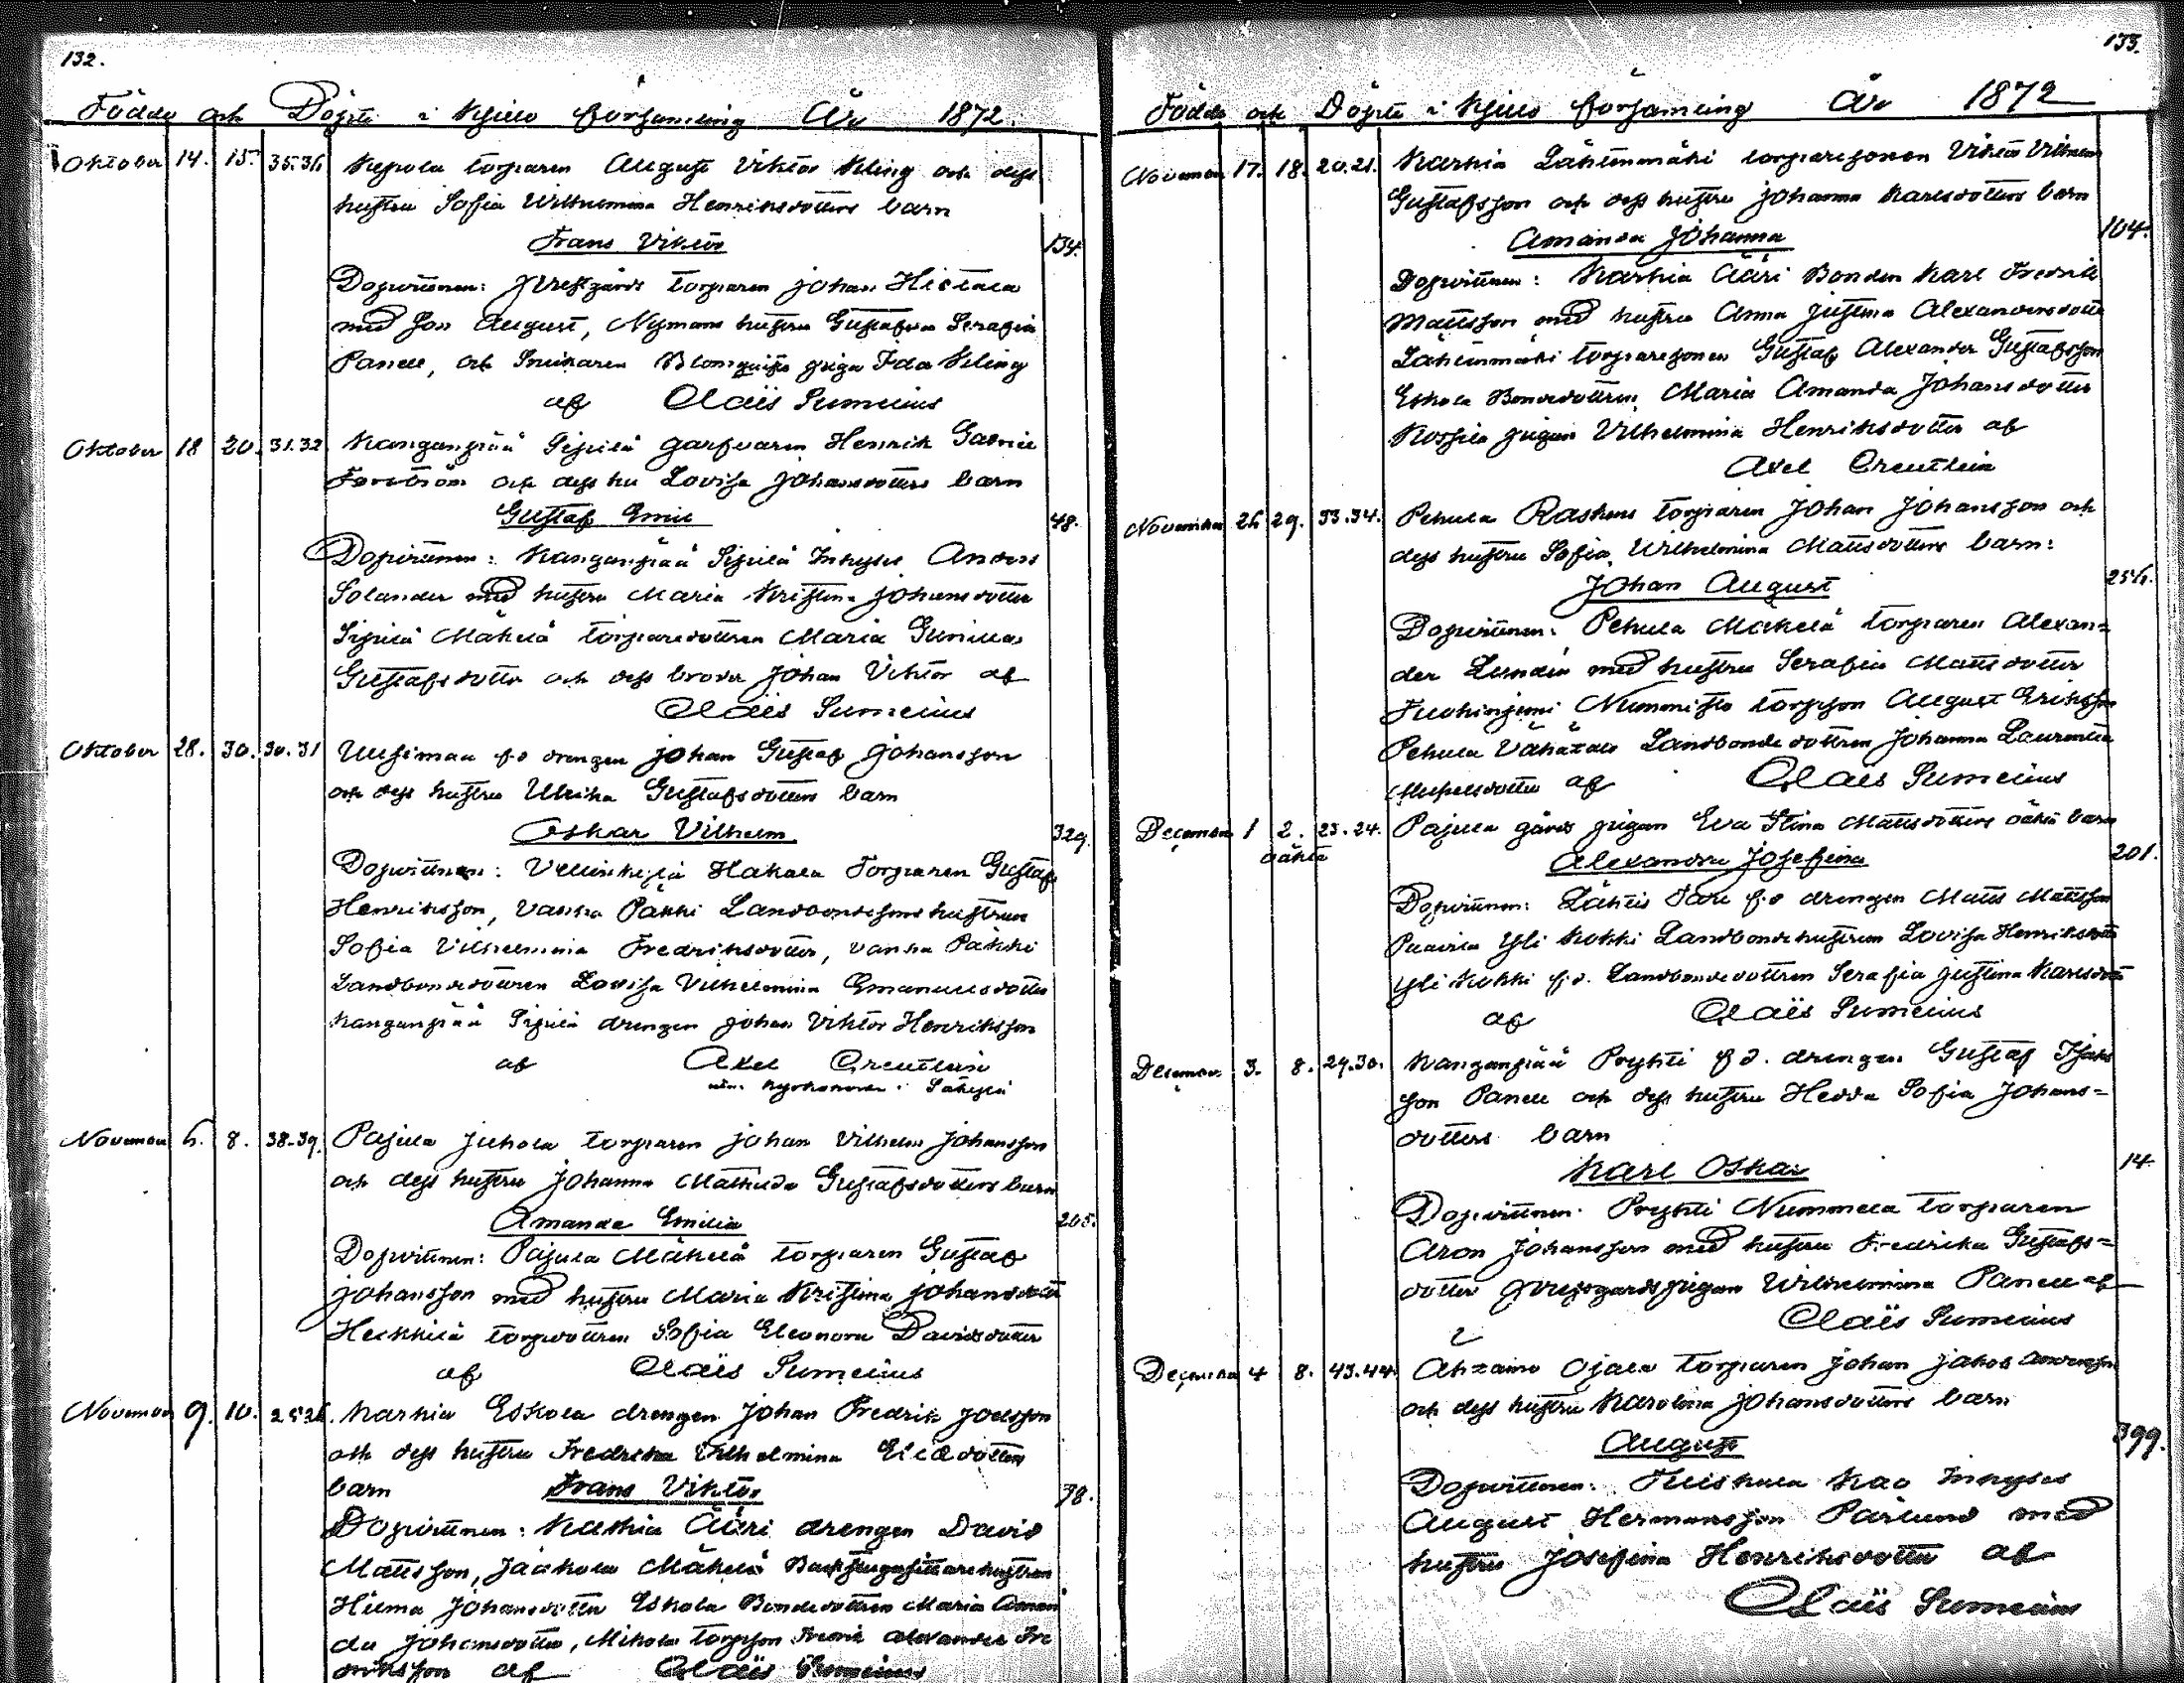 132.
Födde och Döpte i Kjulo församling År 1872.
Oktober 14. 15. 35.36 Kepola torparen August Viktor Kling och dess
hustru Sofia Wilhelmina Henriksdotters barn
Frans Viktor 134.
Dopvittnen: Prestgårds torparen Johan Hietala
med son August, Nymans hustru Gustafva Serafia
Panell, och Snikaren Blomquists piga Ida Kling
af Claës Sumelius
Oktober 18 20. 31.32 Kanganpää Sipilä garfvaren Henrik Gabriel
Forström och dess hu Lovisa Johansdotters barn
Gustaf Emil 48.
Dopvittnen: Kanganpää Sipilä Inhyses Anders
Solander med hustru Maria Kristina Johansdotter
Sipilä Mäkelä torparedottren Maria Gunilla
Gustafsdotter och dess broder Johan Viktor af
Claës Sumelius
Oktober 28. 30. 30.31 Uusimaa f.d drengen Johan Gustaf Johansson
och dess hustru Ulrika Gustafsdotters barn
Oskar Vilhelm 329.
Dopvittnen: Vellinkylä Hakala Torparen Gustaf
Henriksson, Vanha Päkki Landbondesons hustrun
Sofia Vilhelmina Fredriksdotter, Vanha Päkki
Landbondedottren Lovisa Vilhelmina Emanuelsdotter
Kanganpää Sipilä drengen Johan Viktor Henriksson
af Axel Creutlein
Kyrkoherde i Säkylä
November 6. 8. 38.39. Pajula Juhola torparen Johan Vilhelm Johansson
och dess hustru Johanna Mathilda Gustafsdotters barn
Amanda Emilia 205.
Dopvittnen: Pajula Mäkelä torparen Gustaf
Johansson med hustru Maria Kristina Johansdotter
Heikkilä torpdottren Sofia Eleonora Davidsdotter
af Claës Sumelius
November 9. 10. 25.26. Karhia Eskola drengen Johan Fredrik Joelsson
och dess hustru Fredrika Vilhelmina Eliædotters
barn Frans Viktor 78.
Dopvittnen: Karhia Ääri drengen David
Mattsson, Jaakola Mäkelä Backstugusittarehustrun
Hilma Johansdotter Eskola Bondedottren Maria Aman
da Johansdotter, Mikola torpson Fredrik Alexander Fre
driksson af Claës Sumelius
133.
Födde och Döpte i Kjulo församling År 1872
November 17. 18. 20.21. Karhia Lähteenmäki torparesonen Viktor Vilhelm
Gustafsson och dess hustru Johanna Karlsdotters barn
Amanda Johanna 104.
Dopvittnen: Karhia Ääri Bonden Karl Fredrik
Mattsson med hustru Anna Justina Alexandersdotter
Lähteenmäki torparesonen Gustaf Alexander Gustafsson
Eskola Bondedottren Maria Amanda Johansdotter
Kossila pigan Vilhelmina Henriksdotter af
Axel Creutlein
November 26 29. 33.34. Pehula Raskens torparen Johan Johansson och
dess hustru Sofia Wilhelmina Mattsdotters barn:
Johan August 256.
Dopvittnen: Pehula Mäkelä torparen Alexan=
der Lundén med hustru Serafia Mattsdotter
Tuohiniemi Nummisto torpson August Eriksson
Pehula Vähätalo Landbondedottren Johanna Laurentia
Mickelsdotter af Claës Sumelius
December 1 2. 23.24. Pajula gårds pigan Eva Stina Mattsdotters oäkta barn
oäkta Alexandra Josefina 201.
Dopvittnen: Lähteis Sare f.d drengen Matts Mattsson
Yli Kokki Landbondehustrun Lovisa Henriksdotter
Yli Kokki f.d. Landbondedottren Serafia Justina Karlsdotter
af Claës Sumelius
December 3. 8. 29.30. Kanganpää Pryhti f.d. drengen Gustaf Isaks
son Panell och dess hustru Hedda Sofia Johans=
dotters barn
Karl Oskar 14.
Dopvittnen: Pryhti Nummela torparen
Aron Johansson med hustru Fredrika Gustafs=
dotter Prestgårds pigan Wilhelmina Panell af
Claës Sumelius
December 4 8. 43.44. Ahtamo Ojala torparen Johan Jakob Andersson
och dess hustru Karolina Johansdotters barn
August 399.
Dopvittnen: Tuiskula Inhyses
August Hermansson Pärlund med
hustru Josefina Henriksdotter af
Claës Sumelius